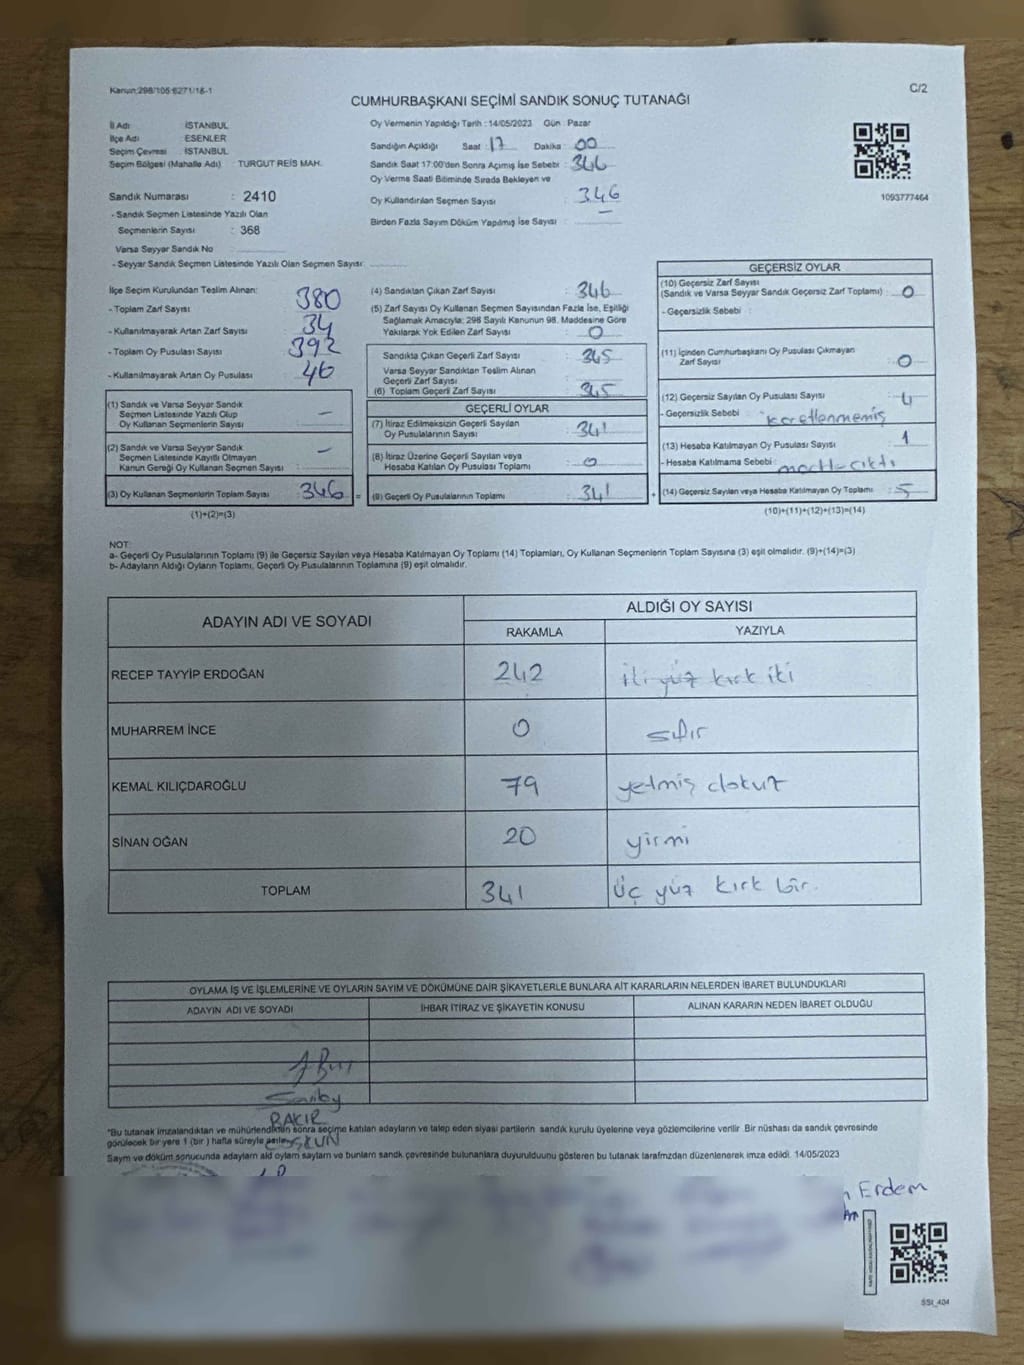 Kanun:298/105-6271/18-1
C/2
CUMHURBAŞKANI SEÇİMİ SANDIK SONUÇ TUTANAĞI
İl Adı : İSTANBUL
İlçe Adı : ESENLER
Seçim Çevresi : İSTANBUL
Seçim Bölgesi (Mahalle Adı) : TURGUT REİS MAH.
Sandık Numarası : 2410
- Sandık Seçmen Listesinde Yazılı Olan
Seçmenlerin Sayısı : 368
Varsa Seyyar Sandık No
- Seyyar Sandık Seçmen Listesinde Yazılı Olan Seçmen Sayısı:
Oy Vermenin Yapıldığı Tarih : 14/05/2023 Gün : Pazar
Sandığın Açıldığı Saat : 17 Dakika : 00
Sandık Saat 17:00'den Sonra Açımış İse Sebebi : 346
Oy Verme Saati Bitiminde Sırada Bekleyen ve
Oy Kullandırılan Seçmen Sayısı : 346
Birden Fazla Sayım Döküm Yapılmış İse Sayısı : —
1093777464
İlçe Seçim Kurulundan Teslim Alınan:
- Toplam Zarf Sayısı : 380
- Kullanılmayarak Artan Zarf Sayısı : 34
- Toplam Oy Pusulası Sayısı : 392
- Kullanılmayarak Artan Oy Pusulası : 46
(1) Sandık ve Varsa Seyyar Sandık
Seçmen Listesinde Yazılı Olup
Oy Kullanan Seçmenlerin Sayısı : —
(2) Sandık ve Varsa Seyyar Sandık
Seçmen Listesinde Kayıtlı Olmayan
Kanun Gereği Oy Kullanan Seçmen Sayısı : —
(3) Oy Kullanan Seçmenlerin Toplam Sayısı : 346 =
(1)+(2)=(3)
(4) Sandıktan Çıkan Zarf Sayısı : 346
(5) Zarf Sayısı Oy Kullanan Seçmen Sayısından Fazla İse, Eşitliği
Sağlamak Amacıyla; 298 Sayılı Kanunun 98. Maddesine Göre
Yakılarak Yok Edilen Zarf Sayısı : 0
Sandıkta Çıkan Geçerli Zarf Sayısı : 345
Varsa Seyyar Sandıktan Teslim Alınan
Geçerli Zarf Sayısı :
(6) Toplam Geçerli Zarf Sayısı : 345
GEÇERLİ OYLAR
(7) İtiraz Edilmeksizin Geçerli Sayılan
Oy Pusulalarının Sayısı : 341
(8) İtiraz Üzerine Geçerli Sayılan veya
Hesaba Katılan Oy Pusulası Toplamı : 0
(9) Geçerli Oy Pusulalarının Toplamı : 341 +
GEÇERSİZ OYLAR
(10) Geçersiz Zarf Sayısı
(Sandık ve Varsa Seyyar Sandık Geçersiz Zarf Toplamı) : 0
- Geçersizlik Sebebi :
(11) İçinden Cumhurbaşkanı Oy Pusulası Çıkmayan
Zarf Sayısı : 0
(12) Geçersiz Sayılan Oy Pusulası Sayısı : 4
- Geçersizlik Sebebi : işaretlenmemiş
(13) Hesaba Katılmayan Oy Pusulası Sayısı : 1
- Hesaba Katılmama Sebebi : çıktı
(14) Geçersiz Sayılan veya Hesaba Katılmayan Oy Toplamı : 5
(10)+(11)+(12)+(13)=(14)
NOT:
a- Geçerli Oy Pusulalarının Toplamı (9) ile Geçersiz Sayılan veya Hesaba Katılmayan Oy Toplamı (14) Toplamları, Oy Kullanan Seçmenlerin Toplam Sayısına (3) eşit olmalıdır. (9)+(14)=(3)
b- Adayların Aldığı Oyların Toplamı, Geçerli Oy Pusulalarının Toplamına (9) eşit olmalıdır.
ADAYIN ADI VE SOYADI
ALDIĞI OY SAYISI
RAKAMLA YAZIYLA
RECEP TAYYİP ERDOĞAN 242 iki yüz kırk iki
MUHARREM İNCE 0 sıfır
KEMAL KILIÇDAROĞLU 79 yetmiş dokuz
SİNAN OĞAN 20 yirmi
TOPLAM 341 Üç yüz kırk bir.
OYLAMA İŞ VE İŞLEMLERİNE VE OYLARIN SAYIM VE DÖKÜMÜNE DAİR ŞİKAYETLERLE BUNLARA AİT KARARLARIN NELERDEN İBARET BULUNDUKLARI
ADAYIN ADI VE SOYADI İHBAR İTİRAZ VE ŞİKAYETİN KONUSU ALINAN KARARIN NEDEN İBARET OLDUĞU
BAKIR
COŞKUN
"Bu tutanak imzalandıktan ve mühürlendikten sonra seçime katılan adayların ve talep eden siyasi partilerin sandık kurulu üyelerine veya gözlemcilerine verilir. Bir nüshası da sandık çevresinde
görülecek bir yere 1 (bir ) hafta süreyle asılır.
Sayım ve döküm sonucunda adayların ald oyların sayların ve bunların sandk çevresinde bulunanlara duyurulduunu gösteren bu tutanak tarafmzdan düzenlenerek imza edildi. 14/05/2023
Erdem
SSI_404